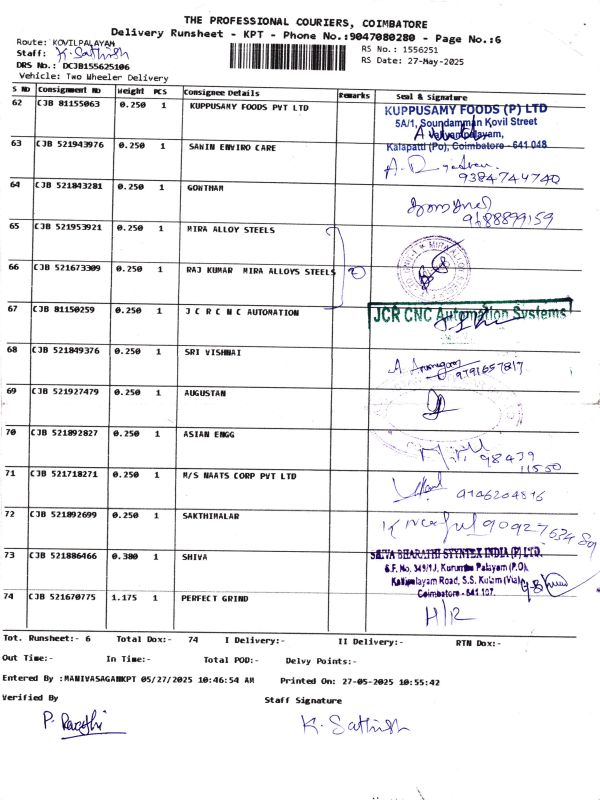 THE PROFESSIONAL COURIERS, COIMBATORE
Delivery Runsheet - KPT - Phone No.:9047080280 - Page No.:6
Route: KOVILPALAYAM
RS No.: 1556251
Staff: K. Sathish
RS Date: 27-May-2025
DRS No.: DCJB155625106
Vehicle: Two Wheeler Delivery
S No Consignment No Weight PCS Consignee Details Remarks Seal & Signature
62 CJB 81155063 0.250 1 KUPPUSAMY FOODS PVT LTD
KUPPUSAMY FOODS (P) LTD
5A/1, Soundamman Kovil Street
Kalapatti (Po), Coimbatore - 641 048
63 CJB 521943976 0.250 1 SANIN ENVIRO CARE
9384744740
64 CJB 521843281 0.250 1 GONTHAM
9688899159
65 CJB 521953921 0.250 1 MIRA ALLOY STEELS
66 CJB 521673309 0.250 1 RAJ KUMAR MIRA ALLOYS STEELS 2
67 CJB 81150259 0.250 1 J C R C N C AUTOMATION
JCR CNC Automation Systems
68 CJB 521849376 0.250 1 SRI VISHNAI
A. Arumugam
9791657817
69 CJB 521927479 0.250 1 AUGUSTAN
70 CJB 521892827 0.250 1 ASIAN ENGG
98439
11550
71 CJB 521718271 0.250 1 M/S NAATS CORP PVT LTD
9146204816
72 CJB 521892699 0.250 1 SAKTHIMALAR
73 CJB 521886466 0.380 1 SHIVA
SHIVA BHARATHI SYNTEX INDIA (P) LTD.
S.F. No. 349/1J, Kurumba Palayam (P.O),
Kalipalayam Road, S.S. Kulam (Via),
Coimbatore - 641 107.
74 CJB 521670775 1.175 1 PERFECT GRIND
H/R
Tot. Runsheet:- 6 Total Dox:- 74 I Delivery:- II Delivery:- RTN Dox:-
Out Time:- In Time:- Total POD:- Delvy Points:-
Entered By :MANIVASAGANKPT 05/27/2025 10:46:54 AM Printed On: 27-05-2025 10:55:42
Verified By Staff Signature
K. Sathish